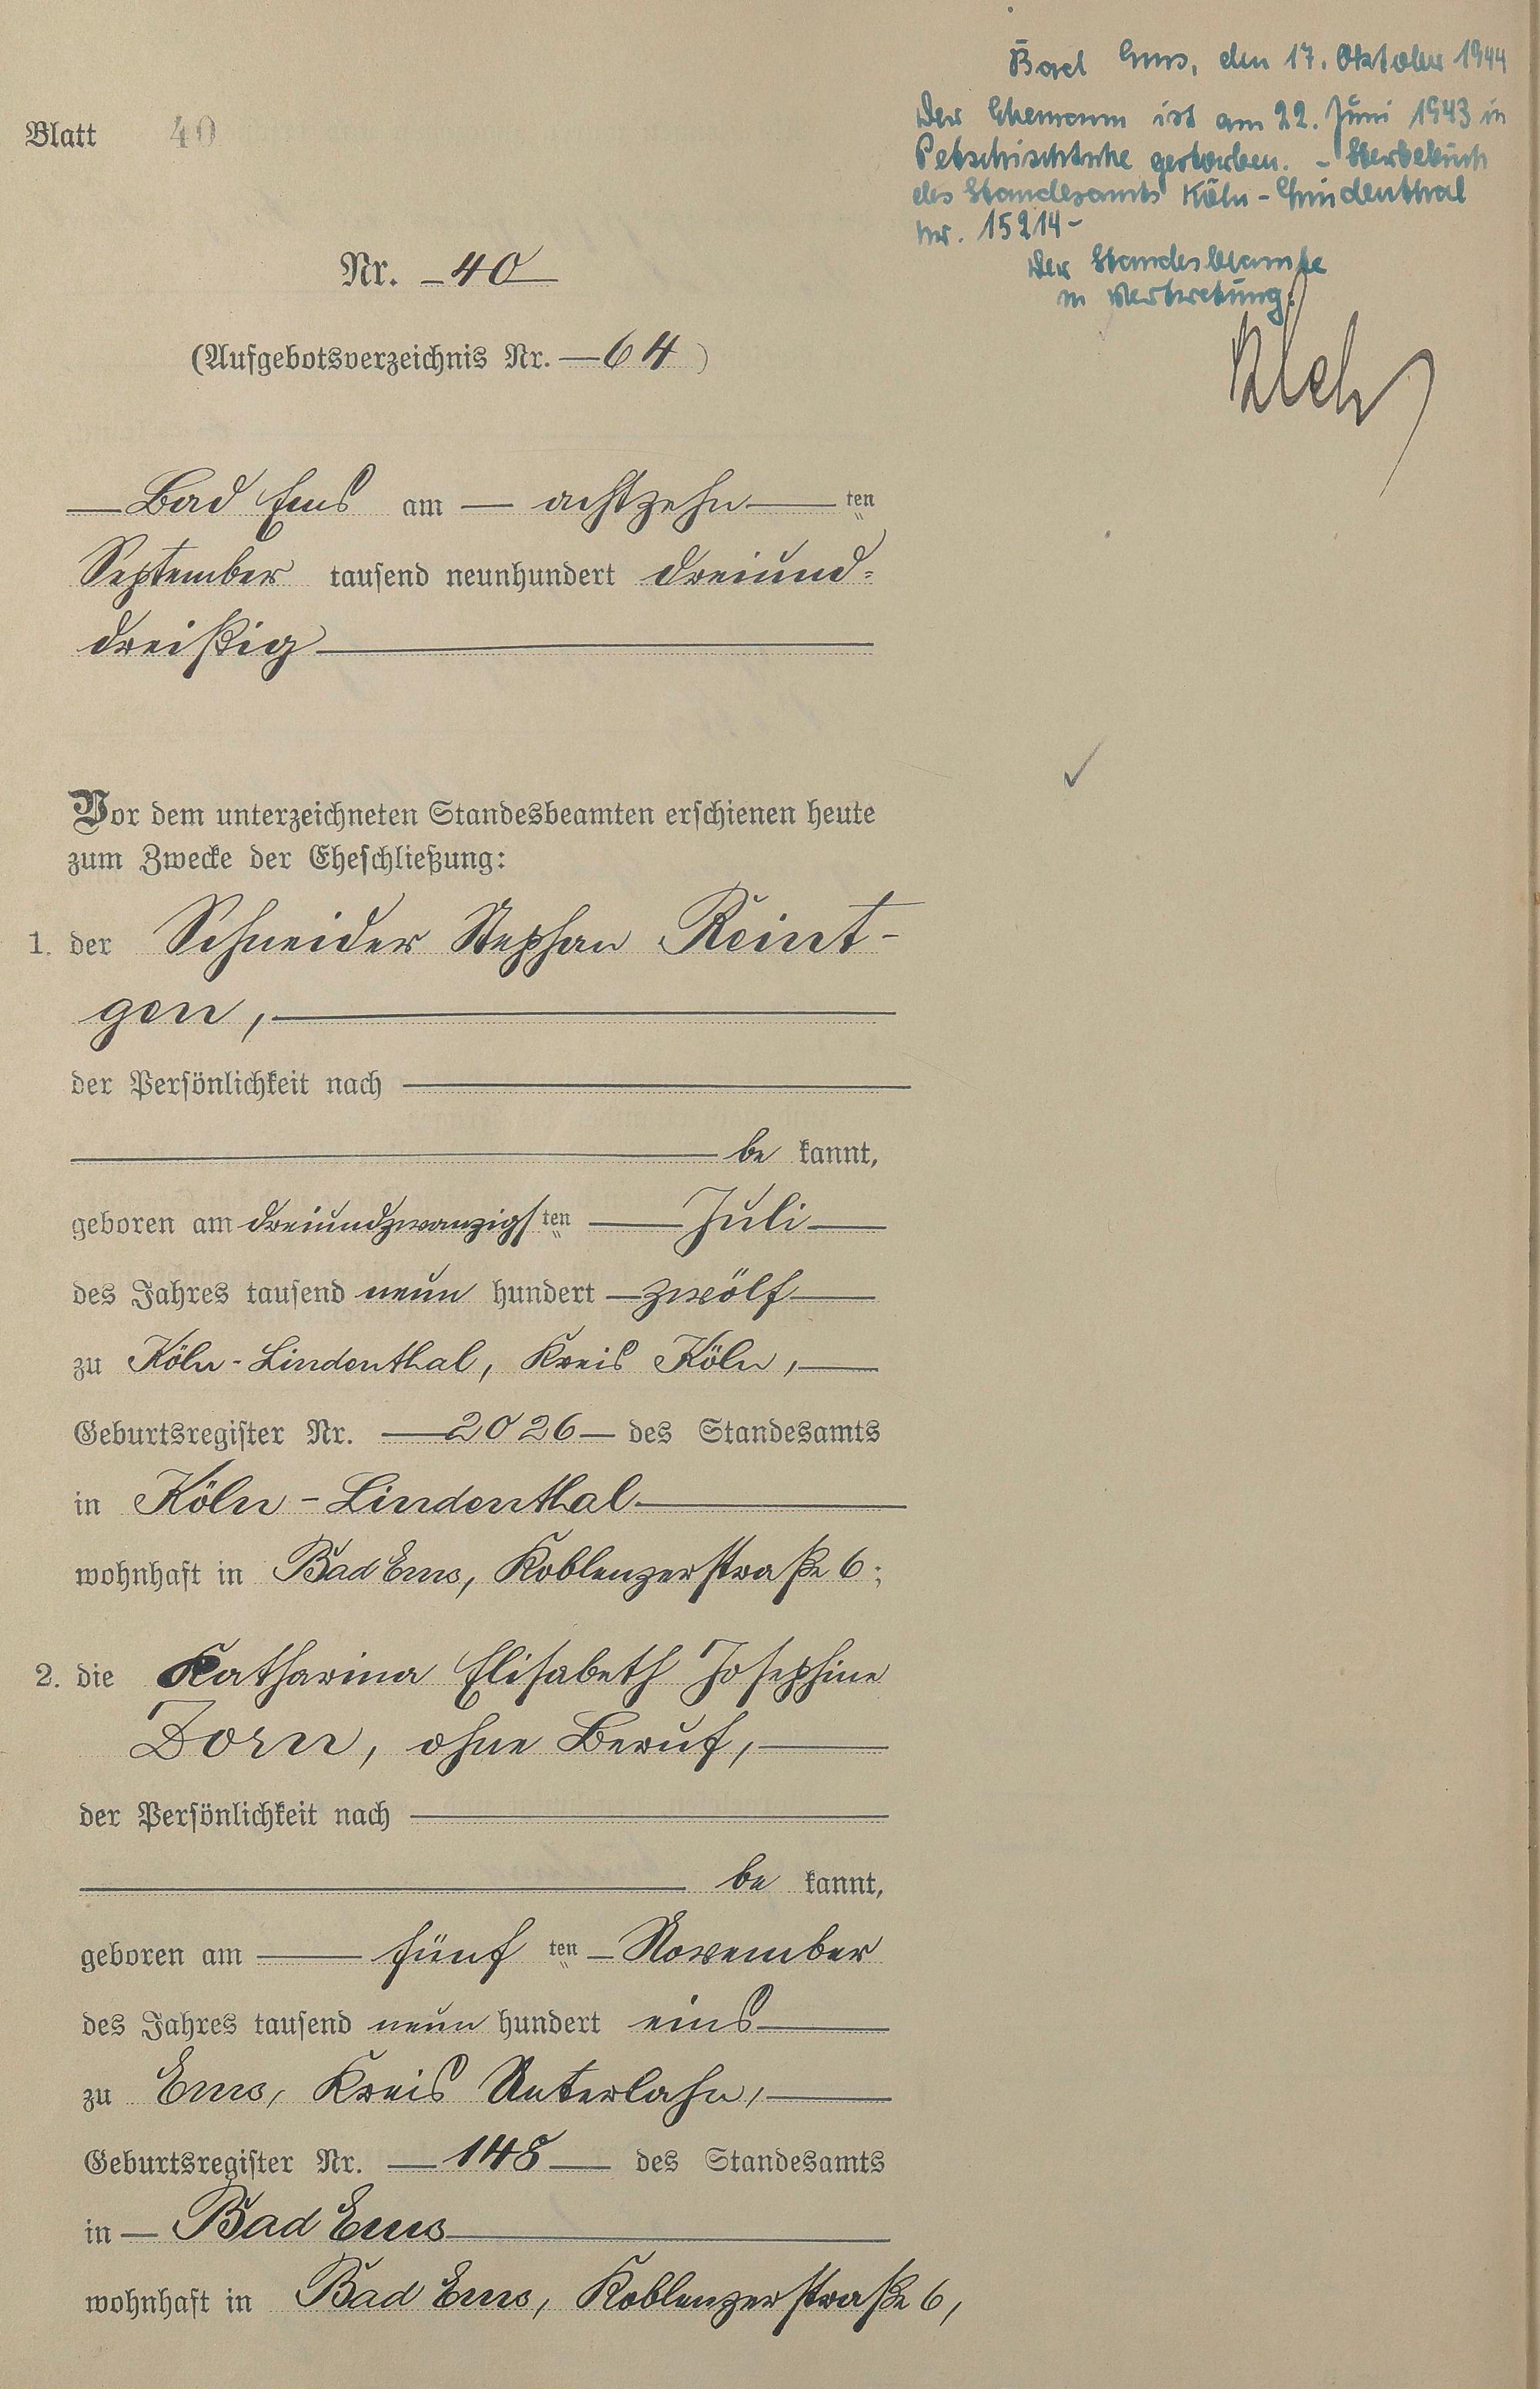 Blatt 40
Nr. 40
(Aufgebotsverzeichnis Nr. 64)
Bad Ems, den 17. Oktober 1944
Der Ehemann ist am 22. Juni 1943 in
Petschischtsche gestorben. - Sterbebuch
des Standesamts Köln-Lindenthal
Nr. 15214-
Der Standesbeamte
in Vertretung:
Bad Ems am achtzehn ten
September tausend neunhundert dreiund=
dreißig
Vor dem unterzeichneten Standesbeamten erschienen heute
zum Zwecke der Eheschließung:
1. der Schneider Stephan Reint-
gen,
der Persönlichkeit nach
be kannt,
geboren am dreiundzwanzigs ten Juli
des Jahres tausend neun hundert zwölf
zu Köln-Lindenthal, Kreis Köln,
Geburtsregister Nr. 2026 des Standesamts
in Köln-Lindenthal
wohnhaft in Bad Ems, Koblenzerstraße 6;
2. die Katharina Elisabeth Josephine
Dorn, ohne Beruf,
der Persönlichkeit nach
be kannt,
geboren am fünf ten November
des Jahres tausend neun hundert eins
zu Ems, Kreis Unterlahn,
Geburtsregister Nr. 148 des Standesamts
in Bad Ems
wohnhaft in Bad Ems, Koblenzerstraße 6,